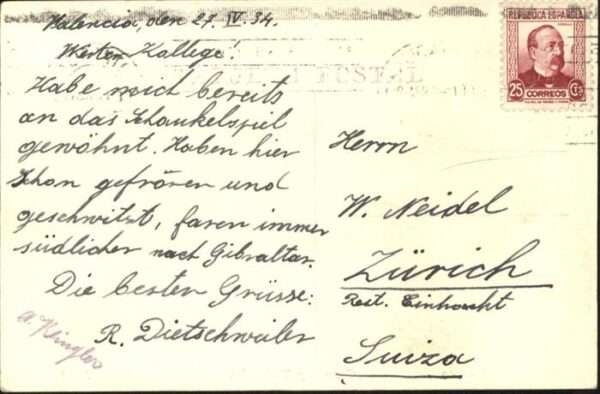 Valencia, den 27. IV. 34.
Werter Kollege!
Habe mich bereits
an das Schaukelspiel
gewöhnt. Haben hier
schon gefroren und
geschwitzt, faren immer
südlicher nach Gibraltar.
Die besten Grüsse:
R. Dietschwiler
REPUBLICA ESPAÑOLA
25 CTS
CORREOS
POSTAL
Herrn
W. Neidel
Zürich
Rest.
Suiza